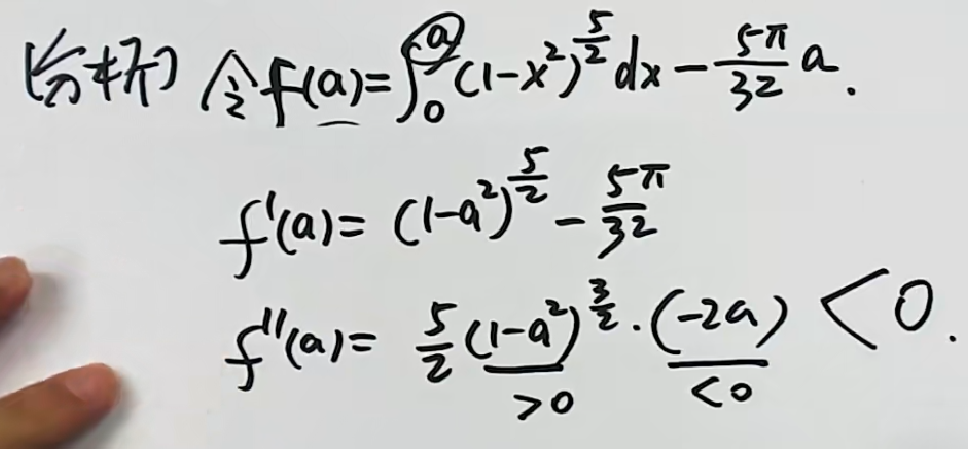 [分析] 令f(a)=∫₀ᵃ(1-x²)^{5/2}dx-\frac{5π}{32}a.
f'(a)=(1-a²)^{5/2}-\frac{5π}{32}
f''(a)=\frac{5}{2}(1-a²)^{3/2}·(-2a)<0.
>0 <0